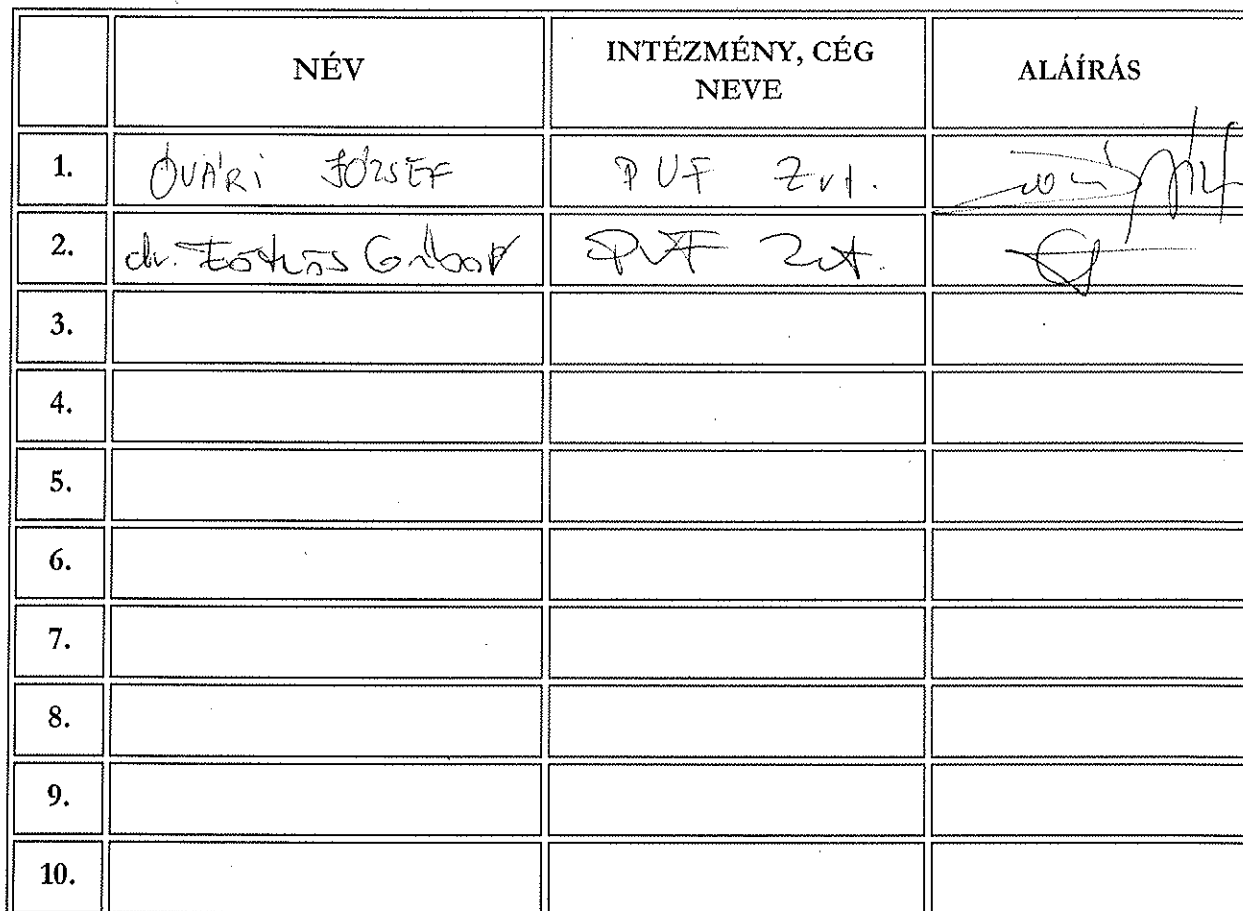 NÉV INTÉZMÉNY, CÉG NEVE ALÁÍRÁS
1. ÓVÁRI JÓZSEF PVF Zrt.
2. dr. Gábor PVF Zrt.
3.
4.
5.
6.
7.
8.
9.
10.